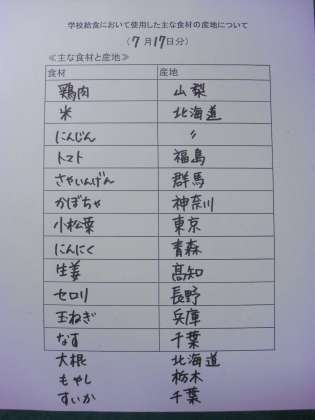 学校給食において使用した主な食材の産地について
(7月17日分)
≪主な食材と産地≫
食材 産地
鶏肉 山梨
米 北海道
にんじん 〃
トマト 福島
さやいんげん 群馬
かぼちゃ 神奈川
小松菜 東京
にんにく 青森
生姜 高知
セロリ 長野
玉ねぎ 兵庫
なす 千葉
大根 北海道
もやし 栃木
すいか 千葉